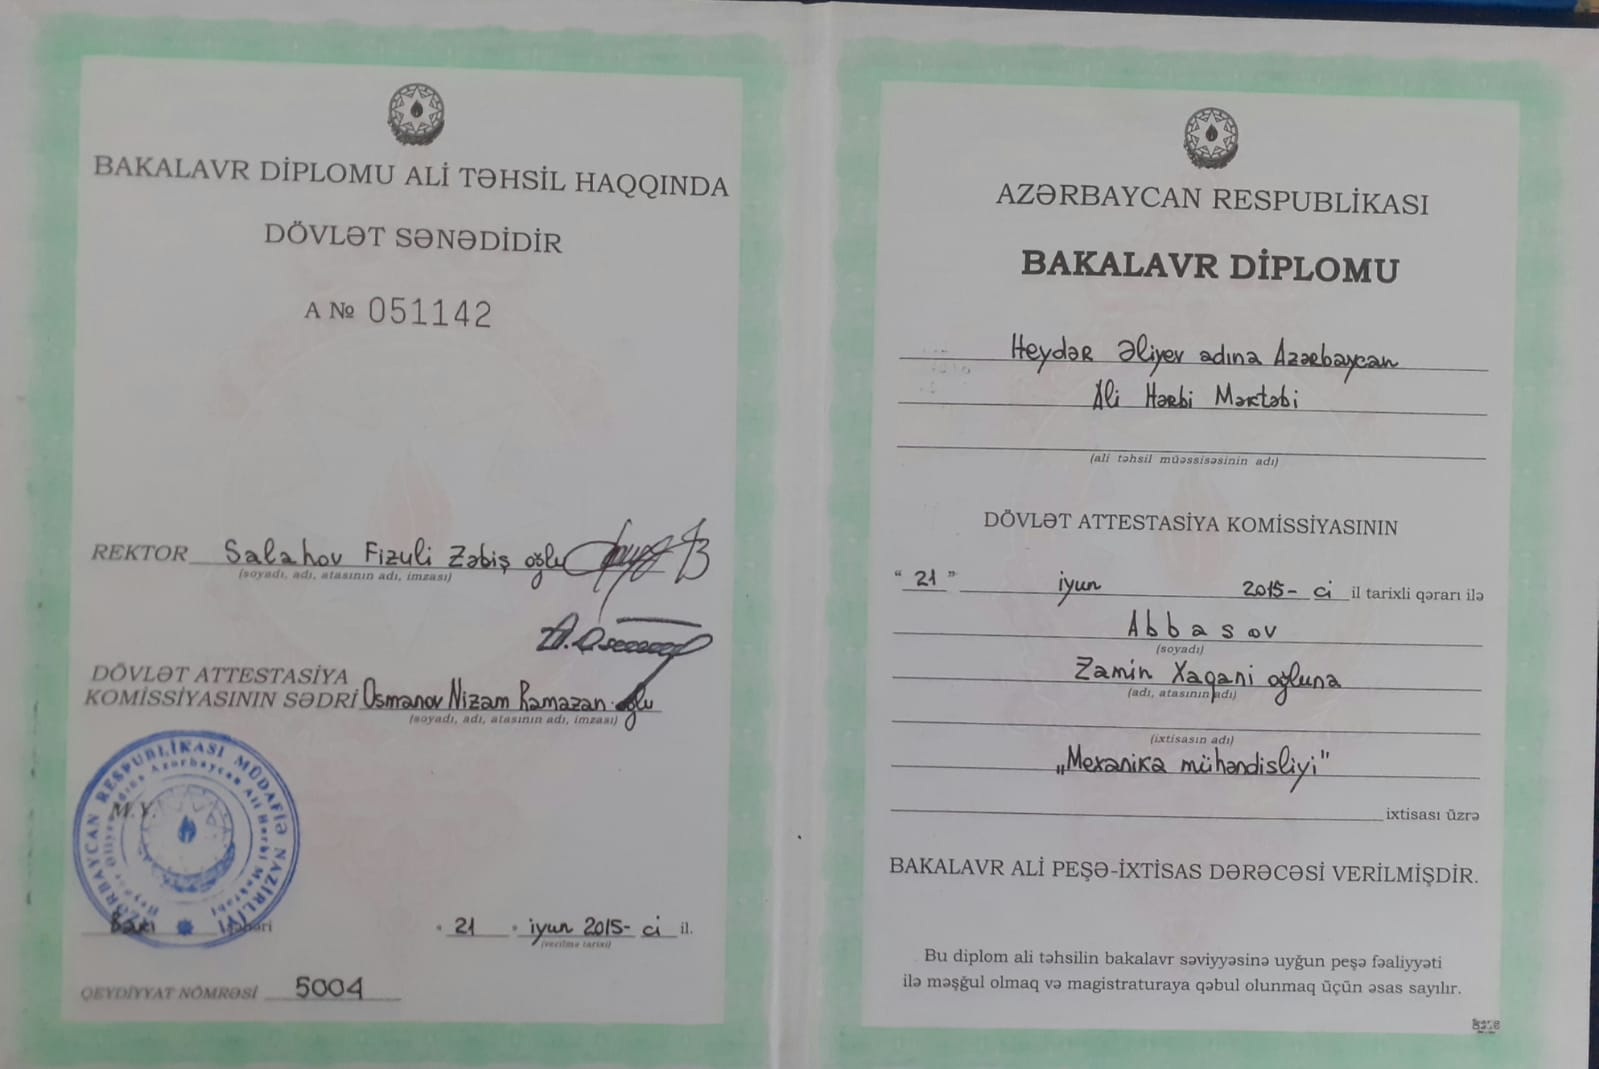 BAKALAVR DİPLOMU ALİ TƏHSİL HAQQINDA
DÖVLƏT SƏNƏDİDİR
A № 051142
REKTOR Salahov Fizuli Zəbiş oğlu
(soyadı, adı, atasının adı, imzası)
DÖVLƏT ATTESTASİYA
KOMİSSİYASININ SƏDRİ Osmanov Nizam Ramazan oğlu
(soyadı, adı, atasının adı, imzası)
AZƏRBAYCAN RESPUBLİKASI MÜDAFİƏ NAZİRLİYİ
Heydər Əliyev adına Azərbaycan Ali Hərbi Məktəbi
M.Y.
Bakı şəhəri
" 21 " iyun 2015- ci il.
(verilmə tarixi)
QEYDİYYAT NÖMRƏSİ 5004
AZƏRBAYCAN RESPUBLİKASI
BAKALAVR DİPLOMU
Heydər Əliyev adına Azərbaycan
Ali Hərbi Məktəbi
(ali təhsil müəssisəsinin adı)
DÖVLƏT ATTESTASİYA KOMİSSİYASININ
" 21 " iyun 2015- ci il tarixli qərarı ilə
Abbasov
(soyadı)
Zamin Xaqani oğluna
(adı, atasının adı)
(ixtisasın adı)
„Mexanika mühəndisliyi"
ixtisası üzrə
BAKALAVR ALİ PEŞƏ-İXTİSAS DƏRƏCƏSİ VERİLMİŞDİR.
Bu diplom ali təhsilin bakalavr səviyyəsinə uyğun peşə fəaliyyəti
ilə məşğul olmaq və magistraturaya qəbul olunmaq üçün əsas sayılır.